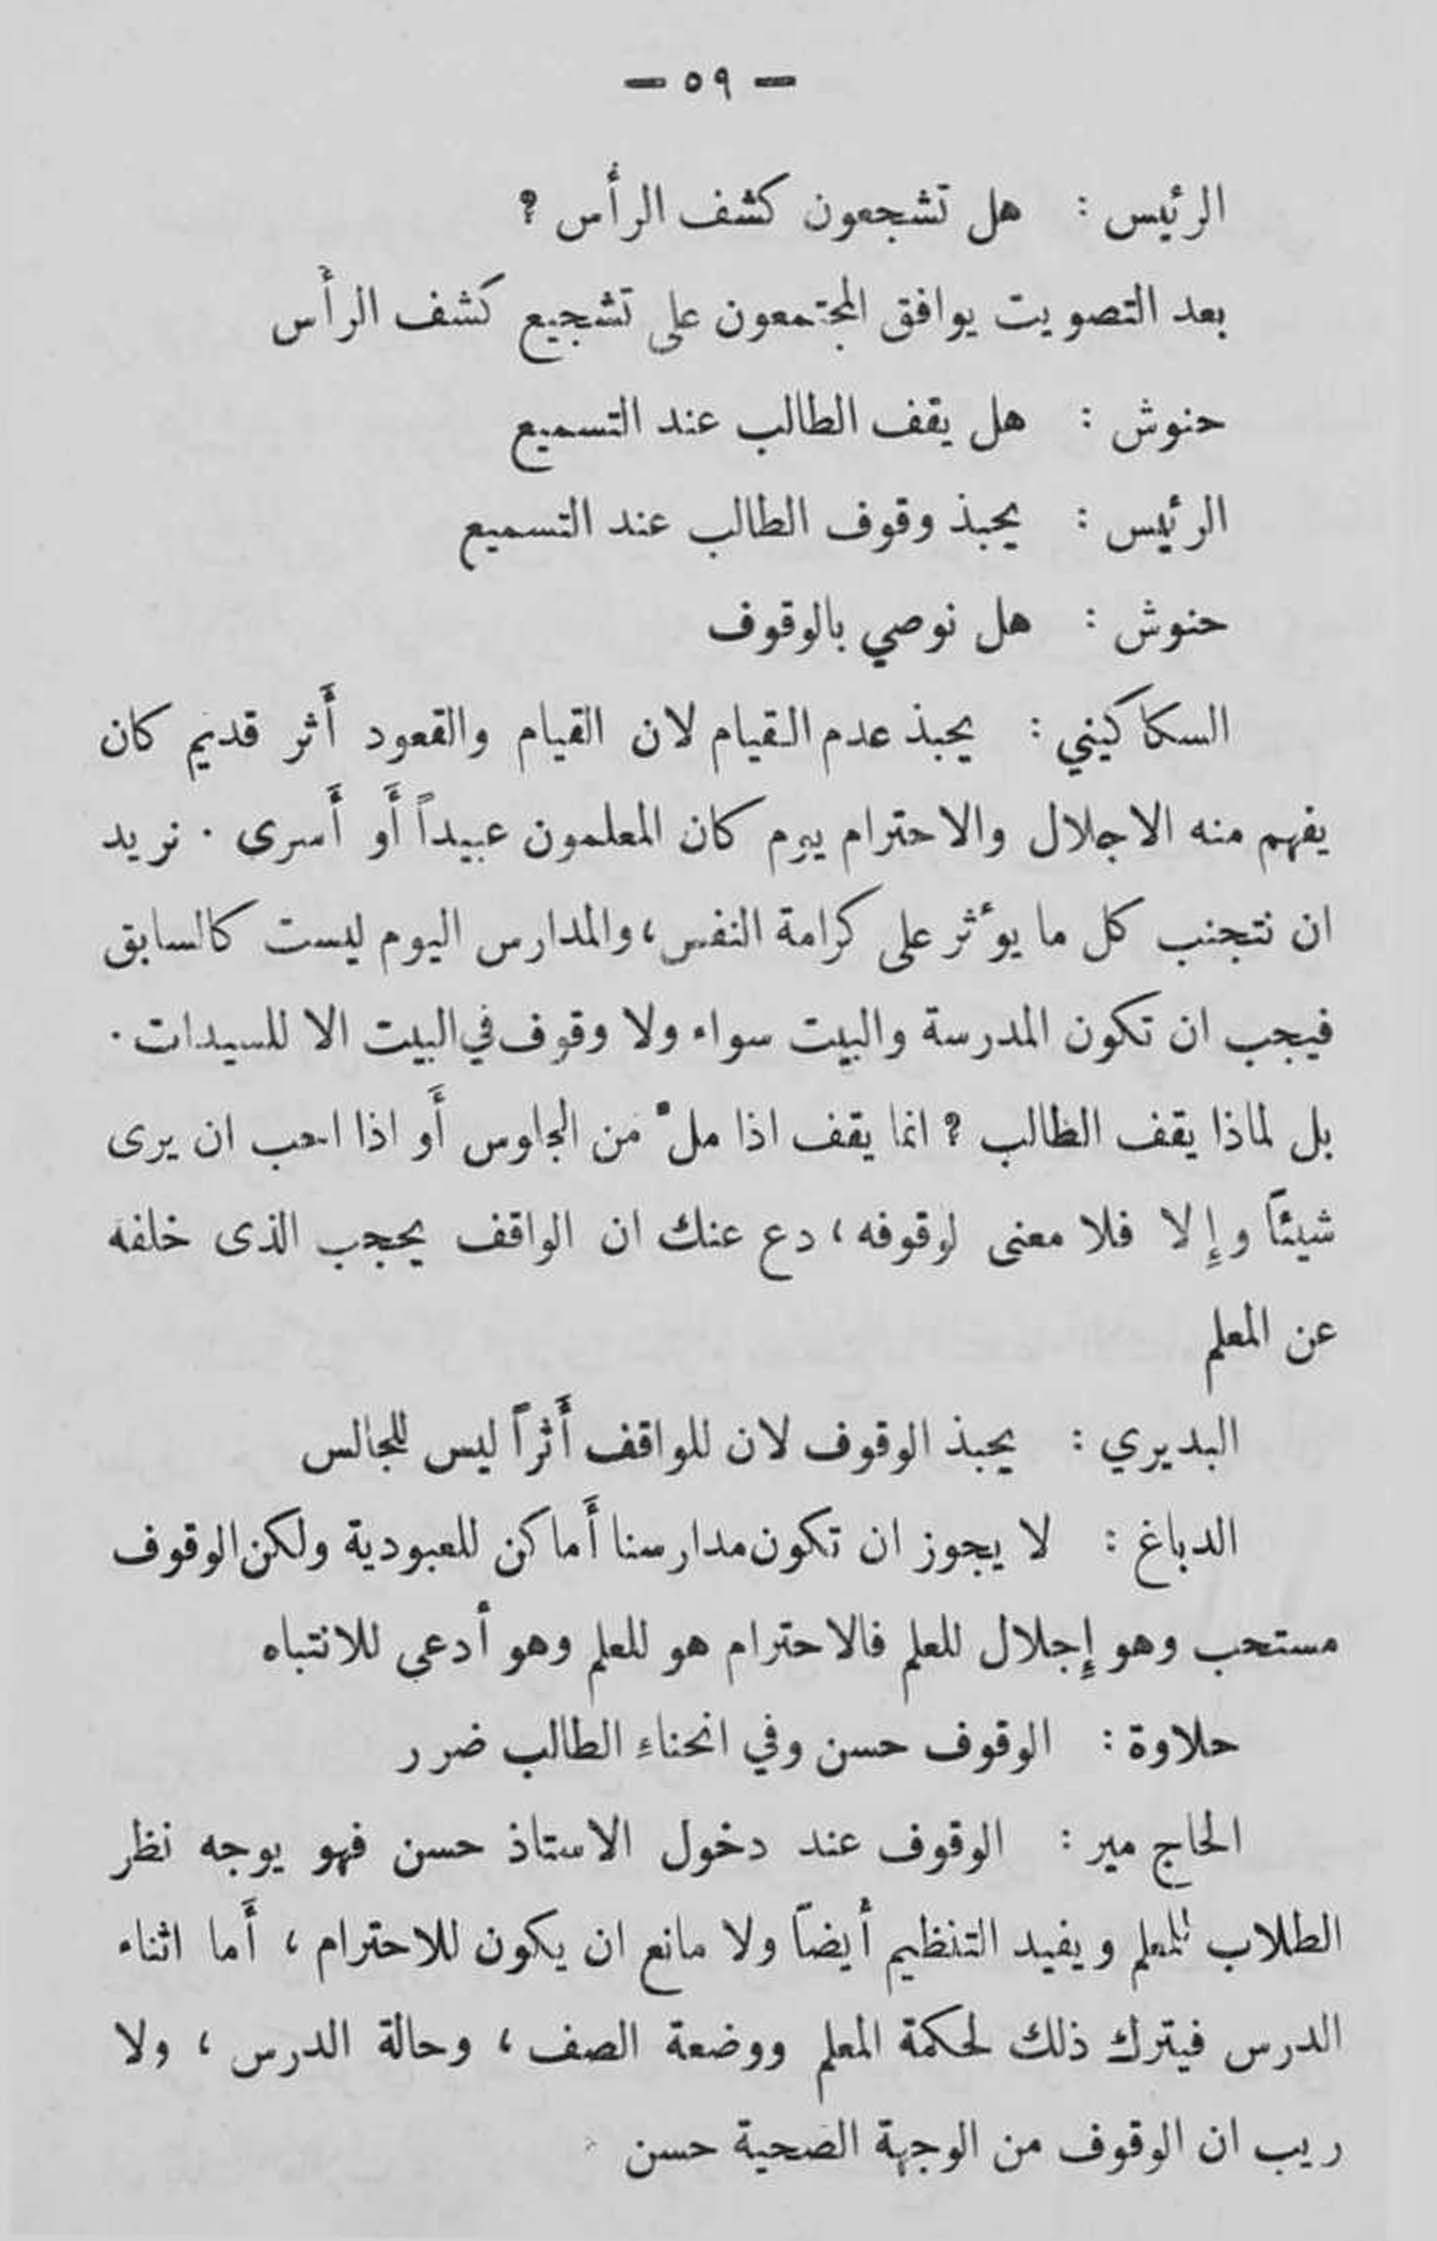 — ٥٩ —
الرئيس : هل تشجعون كشف الرأس ؟
بعد التصويت يوافق المجتمعون على تشجيع كشف الرأس
حنوش : هل يقف الطالب عند التسميع
الرئيس : يحبذ وقوف الطالب عند التسميع
حنوش : هل نوصي بالوقوف
السكاكيني : يحبذ عدم القيام لان القيام والقعود أَثر قديم كان
يفهم منه الاجلال والاحترام يوم كان المعلمون عبيداً أَو أَسرى . نريد
ان نتجنب كل ما يوءثر على كرامة النفس ، والمدارس اليوم ليست كالسابق
فيجب ان تكون المدرسة والبيت سواء ولا وقوف في البيت الا للسيدات .
بل لماذا يقف الطالب ؟ انما يقف اذا ملّ من الجلوس أَو اذا احب ان يرى
شيئاً وإِلا فلا معنى لوقوفه ، دع عنك ان الواقف يحجب الذى خلفه
عن المعلم
البديري : يحبذ الوقوف لان للواقف أَثراً ليس للجالس
الدباغ : لا يجوز ان تكون مدارسنا أَماكن للعبودية ولكن الوقوف
مستحب وهو إِجلال للعلم فالاحترام هو للعلم وهو أدعى للانتباه
حلاوة : الوقوف حسن وفي انحناءِ الطالب ضرر
الحاج مير : الوقوف عند دخول الاستاذ حسن فهو يوجه نظر
الطلاب للمعلم ويفيد التنظيم أيضاً ولا مانع ان يكون للاحترام ، أَما اثناء
الدرس فيترك ذلك لحكمة المعلم ووضعة الصف ، وحالة الدرس ، ولا
ريب ان الوقوف من الوجهة الصحية حسن